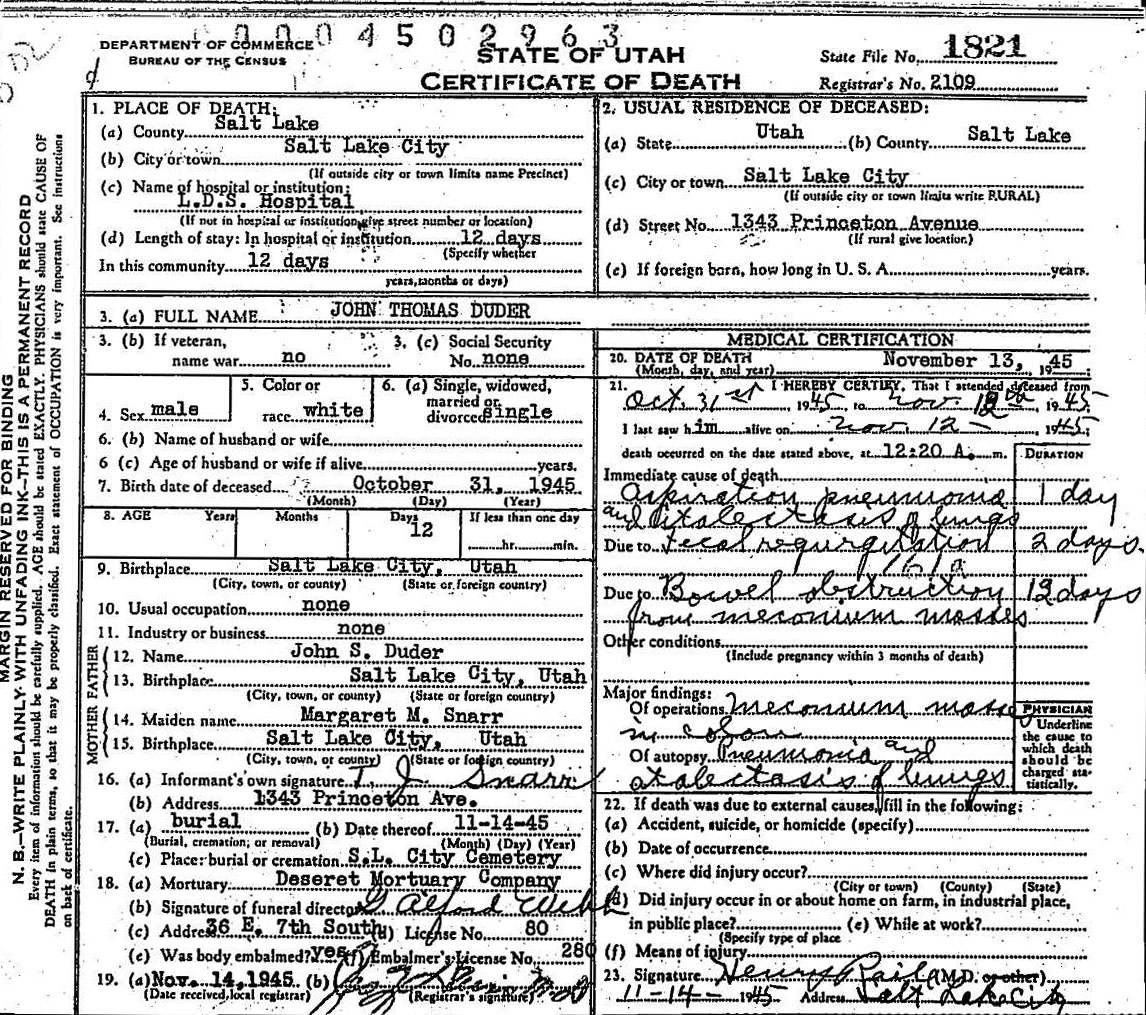 0004502963
DEPARTMENT OF COMMERCE
BUREAU OF THE CENSUS
STATE OF UTAH
CERTIFICATE OF DEATH
State File No. 1821
Registrar's No. 2109
MARGIN RESERVED FOR BINDING
N. B.—WRITE PLAINLY WITH UNFADING INK—THIS IS A PERMANENT RECORD
Every item of information should be carefully supplied. AGE should be stated EXACTLY. PHYSICIANS should state CAUSE OF
DEATH in plain terms, so that it may be properly classified. Exact statement of OCCUPATION is very important. See instructions
on back of certificate.
1. PLACE OF DEATH:
(a) County Salt Lake
(b) City or town Salt Lake City
(If outside city or town limits name Precinct)
(c) Name of hospital or institution:
L.D.S. Hospital
(If not in hospital or institution give street number or location)
(d) Length of stay: In hospital or institution 12 days
(Specify whether
In this community 12 days
years, months or days)
2. USUAL RESIDENCE OF DECEASED:
(a) State Utah (b) County Salt Lake
(c) City or town Salt Lake City
(If outside city or town limits write RURAL)
(d) Street No. 1343 Princeton Avenue
(If rural give location.)
(e) If foreign born, how long in U. S. A. years.
3. (a) FULL NAME JOHN THOMAS DUDER
3. (b) If veteran,
name war no
3. (c) Social Security
No. none
4. Sex male
5. Color or
race white
6. (a) Single, widowed,
married or
divorced single
6. (b) Name of husband or wife
6 (c) Age of husband or wife if alive years.
7. Birth date of deceased October 31, 1945
(Month) (Day) (Year)
8. AGE Years Months Days If less than one day
12 hr. min.
9. Birthplace Salt Lake City, Utah
(City, town, or county) (State or foreign country)
10. Usual occupation none
11. Industry or business none
FATHER
12. Name John S. Duder
13. Birthplace Salt Lake City, Utah
(City, town, or county) (State or foreign country)
MOTHER
14. Maiden name Margaret M. Snarr
15. Birthplace Salt Lake City, Utah
(City, town, or county) (State or foreign country)
16. (a) Informant's own signature T. J. Snarr
(b) Address 1343 Princeton Ave.
17. (a) burial (b) Date thereof 11-14-45
(Burial, cremation, or removal) (Month) (Day) (Year)
(c) Place: burial or cremation S.L. City Cemetery
18. (a) Mortuary Deseret Mortuary Company
(b) Signature of funeral director Webb
(c) Address 36 E. 7th South (d) License No. 80
(e) Was body embalmed? yes (f) Embalmer's License No. 280
19. (a) Nov. 14, 1945 (b)
(Date received local registrar) (Registrar's signature)
MEDICAL CERTIFICATION
20. DATE OF DEATH November 13, 1945
(Month, day, and year)
21. I HEREBY CERTIFY, That I attended deceased from
Oct. 31st, 1945 to Nov. 12th, 1945
I last saw him alive on Nov 12 - 1945;
death occurred on the date stated above, at 12:20 A. m.
DURATION
Immediate cause of death
Aspiration pneumonia 1 day
and Atalectasis of lungs
Due to Fecal regurgitation 2 days.
161a
Due to Bowel obstruction 12 days
from meconium masses
Other conditions
(Include pregnancy within 3 months of death)
Major findings:
Of operations meconium masses
in colon
Of autopsy Pneumonia and
atalectasis of lungs
PHYSICIAN
Underline
the cause to
which death
should be
charged sta-
tistically.
22. If death was due to external causes, fill in the following:
(a) Accident, suicide, or homicide (specify)
(b) Date of occurrence
(c) Where did injury occur?
(City or town) (County) (State)
(d) Did injury occur in or about home on farm, in industrial place,
in public place? (e) While at work?
(Specify type of place
(f) Means of injury
23. Signature Henry Raile (M.D. or other)
11-14- 1945 Address Salt Lake City